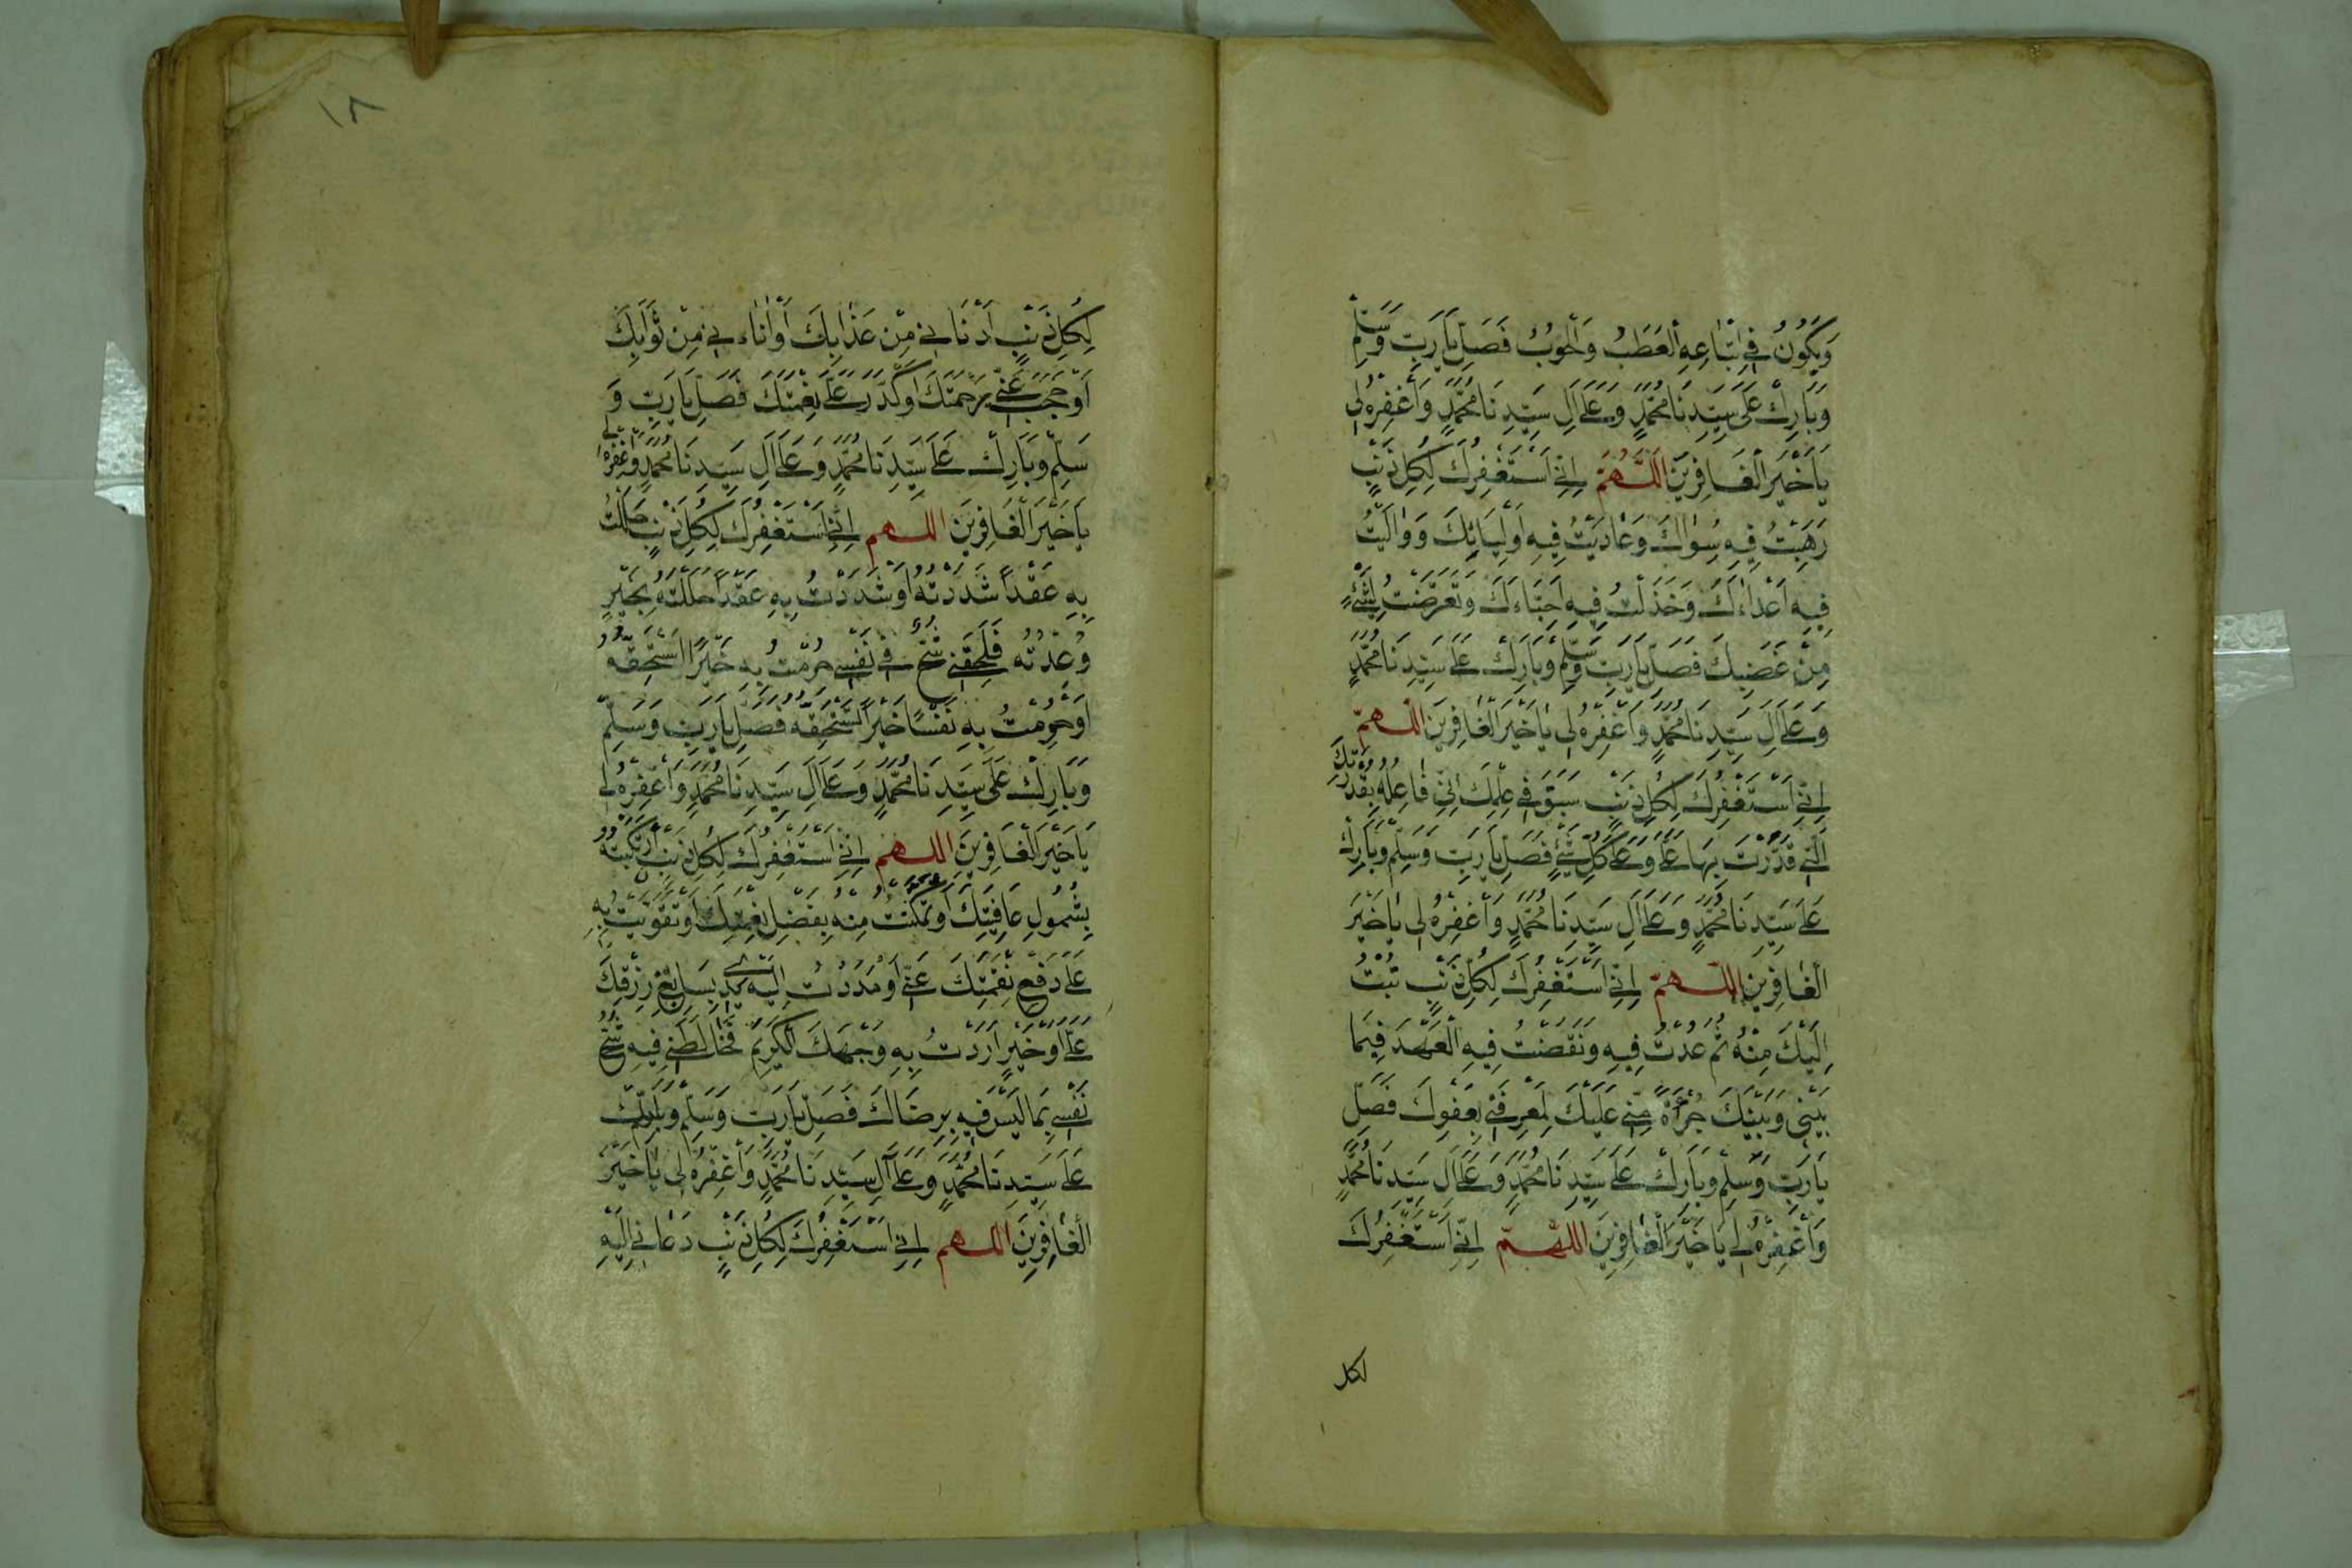 وَيَكُونُ فِي اتِّبَاعِهِ الْعَطَبُ وَالْحُوبُ فَصَلِّ يَا رَبِّ وَسَلِّمْ
وَبَارِكْ عَلَى سَيِّدِنَا مُحَمَّدٍ وَعَلَى آلِ سَيِّدِنَا مُحَمَّدٍ وَاغْفِرْهُ لِي
يَا خَيْرَ الْغَافِرِينَ اَللَّهُمَّ اِنِّي اَسْتَغْفِرُكَ لِكُلِّ ذَنْبٍ
رَهِبْتُ فِيهِ سِوَاكَ وَعَادَيْتُ فِيهِ اَوْلِيَائِكَ وَوَالَيْتُ
فِيهِ اَعْدَاءَكَ وَخَذَلْتُ فِيهِ اَحِبَّاءَكَ وَتَعَرَّضْتُ لِشَيْءٍ
مِنْ غَضَبِكَ فَصَلِّ يَا رَبِّ وَسَلِّمْ وَبَارِكْ عَلَى سَيِّدِنَا مُحَمَّدٍ
وَعَلَى آلِ سَيِّدِنَا مُحَمَّدٍ وَاغْفِرْهُ لِي يَا خَيْرَ الْغَافِرِينَ اللهم
اِنِّي اَسْتَغْفِرُكَ لِكُلِّ ذَنْبٍ سَبَقَ فِي عِلْمِكَ اَنِّي فَاعِلُهُ بِقُدْرَتِكَ
الَّتِي قَدَرْتَ بِهَا عَلَيَّ وَعَلَى كُلِّ شَيْءٍ فَصَلِّ يَا رَبِّ وَسَلِّمْ وَبَارِكْ
عَلَى سَيِّدِنَا مُحَمَّدٍ وَعَلَى آلِ سَيِّدِنَا مُحَمَّدٍ وَاغْفِرْهُ لِي يَا خَيْرَ
الْغَافِرِينَ اللهم اِنِّي اَسْتَغْفِرُكَ لِكُلِّ ذَنْبٍ تُبْتُ
اِلَيْكَ مِنْهُ ثُمَّ عُدْتُ فِيهِ وَنَقَضْتُ فِيهِ الْعَهْدَ فِيمَا
بَيْنِي وَبَيْنَكَ جُرْأَةً مِنِّي عَلَيْكَ لِمَعْرِفَتِي بِعَفْوِكَ فَصَلِّ
يَا رَبِّ وَسَلِّمْ وَبَارِكْ عَلَى سَيِّدِنَا مُحَمَّدٍ وَعَلَى آلِ سَيِّدِنَا مُحَمَّدٍ
وَاغْفِرْهُ لِي يَا خَيْرَ الْغَافِرِينَ اللهم اِنِّي اَسْتَغْفِرُكَ
لكل
١٨
لِكُلِّ ذَنْبٍ اَدْنَانِي مِنْ عَذَابِكَ اَوْ اَنَاءَنِي مِنْ ثَوَابِكَ
اَوْ حَجَبَ عَنِّي رَحْمَتَكَ اَوْ كَدَّرَ عَلَيَّ نِعْمَتَكَ فَصَلِّ يَا رَبِّ وَ
سَلِّمْ وَبَارِكْ عَلَى سَيِّدِنَا مُحَمَّدٍ وَعَلَى آلِ سَيِّدِنَا مُحَمَّدٍ وَاغْفِرْهُ لِي
يَا خَيْرَ الْغَافِرِينَ اللهم اِنِّي اَسْتَغْفِرُكَ لِكُلِّ ذَنْبٍ حَلَلْتُ
بِهِ عَقْدًا شَدَدْتَهُ اَوْ شَدَدْتُ بِهِ عَقْدًا حَلَلْتَهُ بِخَيْرٍ
وُعِدْتُهُ فَلَحِقَنِي شُحٌّ فِي نَفْسِي حُرِمْتُ بِهِ خَيْرًا اَسْتَحِقُّهُ
اَوْ حَرَمْتُ بِهِ نَفْسًا خَيْرًا تَسْتَحِقُّهُ فَصَلِّ يَا رَبِّ وَسَلِّمْ
وَبَارِكْ عَلَى سَيِّدِنَا مُحَمَّدٍ وَعَلَى آلِ سَيِّدِنَا مُحَمَّدٍ وَاغْفِرْهُ لِي
يَا خَيْرَ الْغَافِرِينَ اللهم اِنِّي اَسْتَغْفِرُكَ لِكُلِّ ذَنْبٍ ارْتَكَبْتُهُ
بِشُمُولِ عَافِيَتِكَ اَوْ تَمَكَّنْتُ مِنْهُ بِفَضْلِ نِعْمَتِكَ اَوْ تَقَوَّيْتُ بِهِ
عَلَى دَفْعِ نِقْمَتِكَ عَنِّي اَوْ مَدَدْتُ اِلَيْهِ يَدِي بِسَابِغِ رِزْقِكَ
عَلَيَّ اَوْ خَيْرٍ اَرَدْتُ بِهِ وَجْهَكَ الْكَرِيمَ فَخَالَطَنِي فِيهِ شُحُّ
نَفْسِي بِمَا لَيْسَ فِيهِ رِضَاكَ فَصَلِّ يَا رَبِّ وَسَلِّمْ وَبَارِكْ
عَلَى سَيِّدِنَا مُحَمَّدٍ وَعَلَى آلِ سَيِّدِنَا مُحَمَّدٍ وَاغْفِرْهُ لِي يَا خَيْرَ
الْغَافِرِينَ اللهم اِنِّي اَسْتَغْفِرُكَ لِكُلِّ ذَنْبٍ دَعَانِي اِلَيْهِ